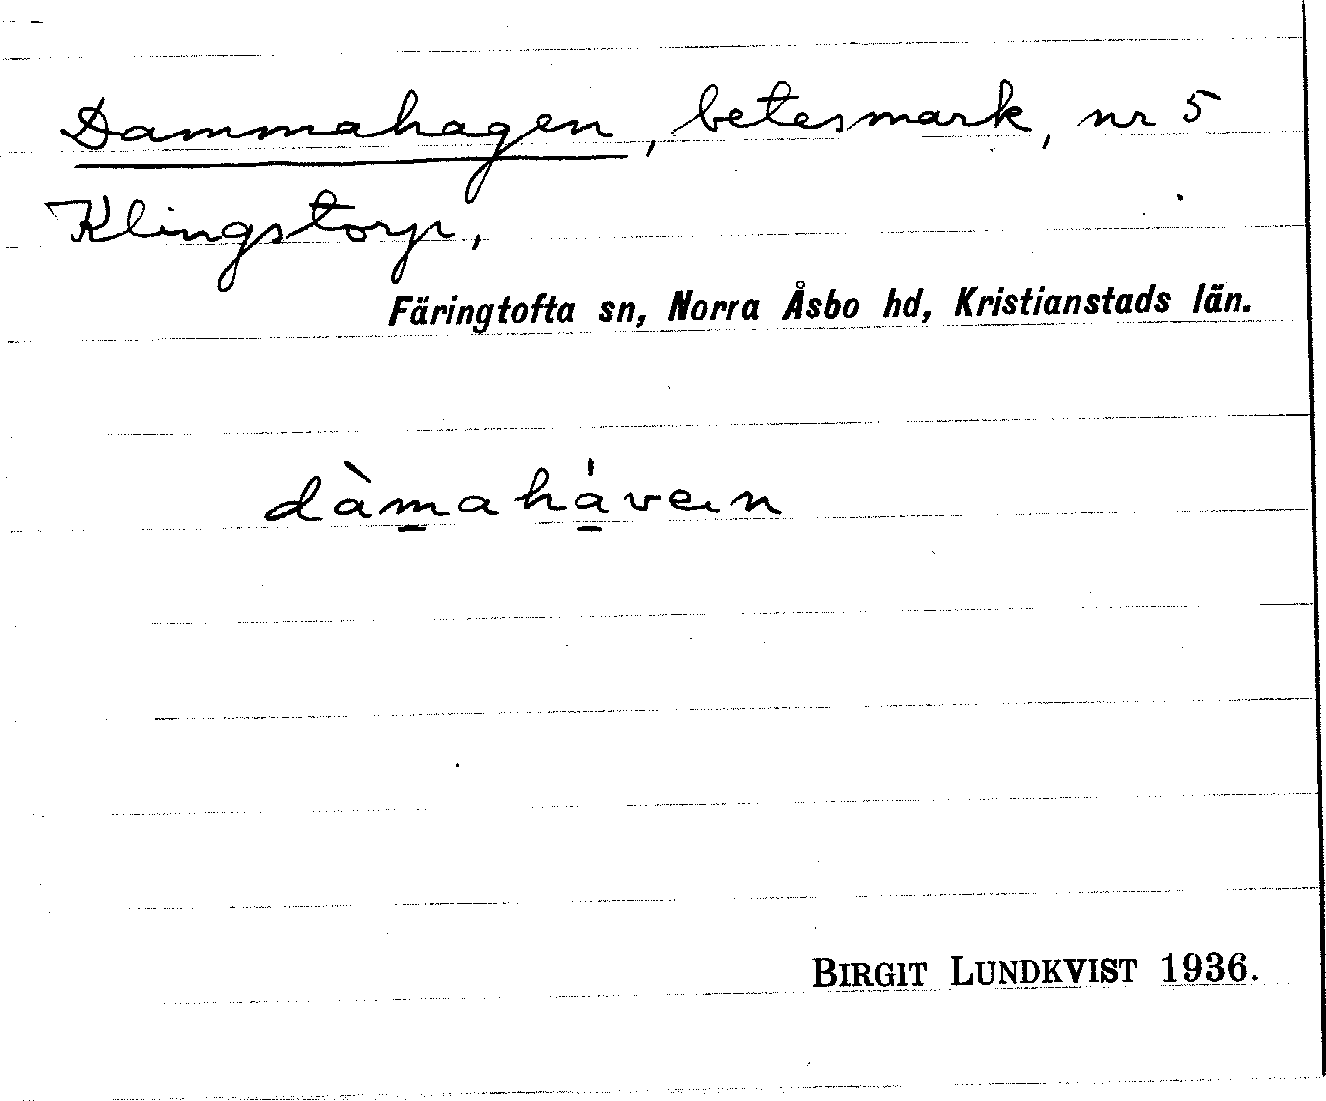 Dammahagen, betesmark, nr 5
Klingstorp,
Färingtofta sn, Norra Åsbo hd, Kristianstads län.
dàm̲ahá̲ven
BIRGIT LUNDKVIST 1936.